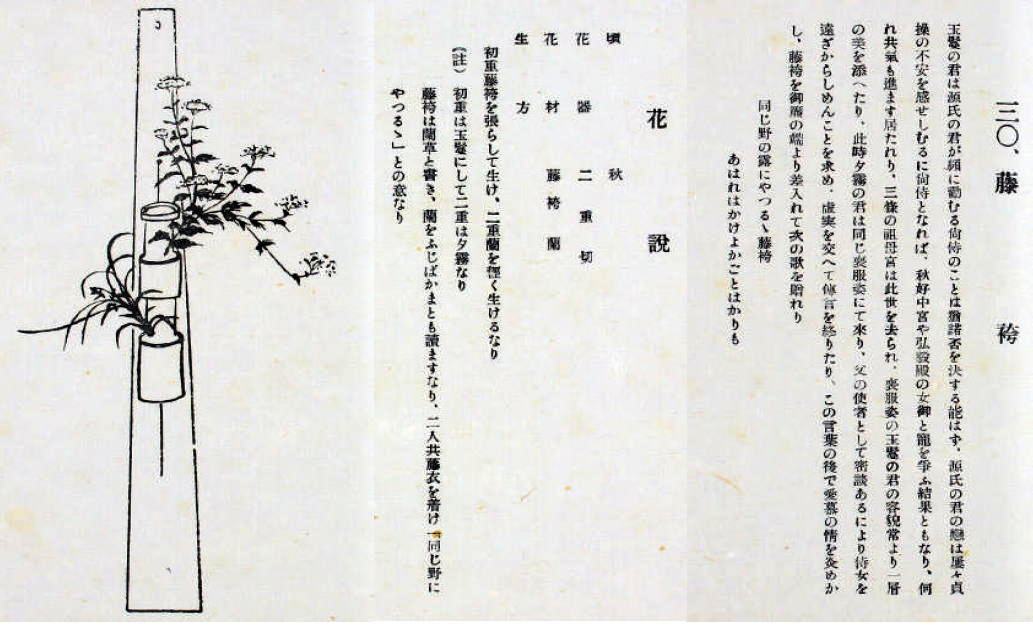 三〇、藤袴
玉鬘の君は源氏の君が頻に勸むる尙侍のことは猶諾否を決する能はず、源氏の君の戀は屢々貞
操の不安を感せしむるに尙侍となれば、秋好中宮や弘毅殿の女御と寵を爭ふ結果ともなり、何
れ共氣も進ます居たれり、三條の祖母宮は此世を去られ、喪服姿の玉鬘の君の容貌常より一層
の美を添へたり、此時夕霧の君は同じ喪服姿にて來り、父の使者として密談あるにより侍女を
遠ざからしめんことを求め、虛実を交へて傳言を終りたり、この言葉の後で愛慕の情を灸めか
し、藤袴を御簾の端より差入れて次の歌を贈れり
同じ野の露にやつるゝ藤袴
あはれはかけよかごとはかりも
花說
頃　秋
花器　二重切
花材　藤袴　蘭
生方
初重藤袴を張らして生け、二重蘭を輕く生けるなり
（註）　初重は玉鬘にして二重は夕霧なり
藤袴は蘭草と書き、蘭をふじばかまとも讀ますなり、二人共藤衣を着け「同じ野に
やつるゝ」との意なり